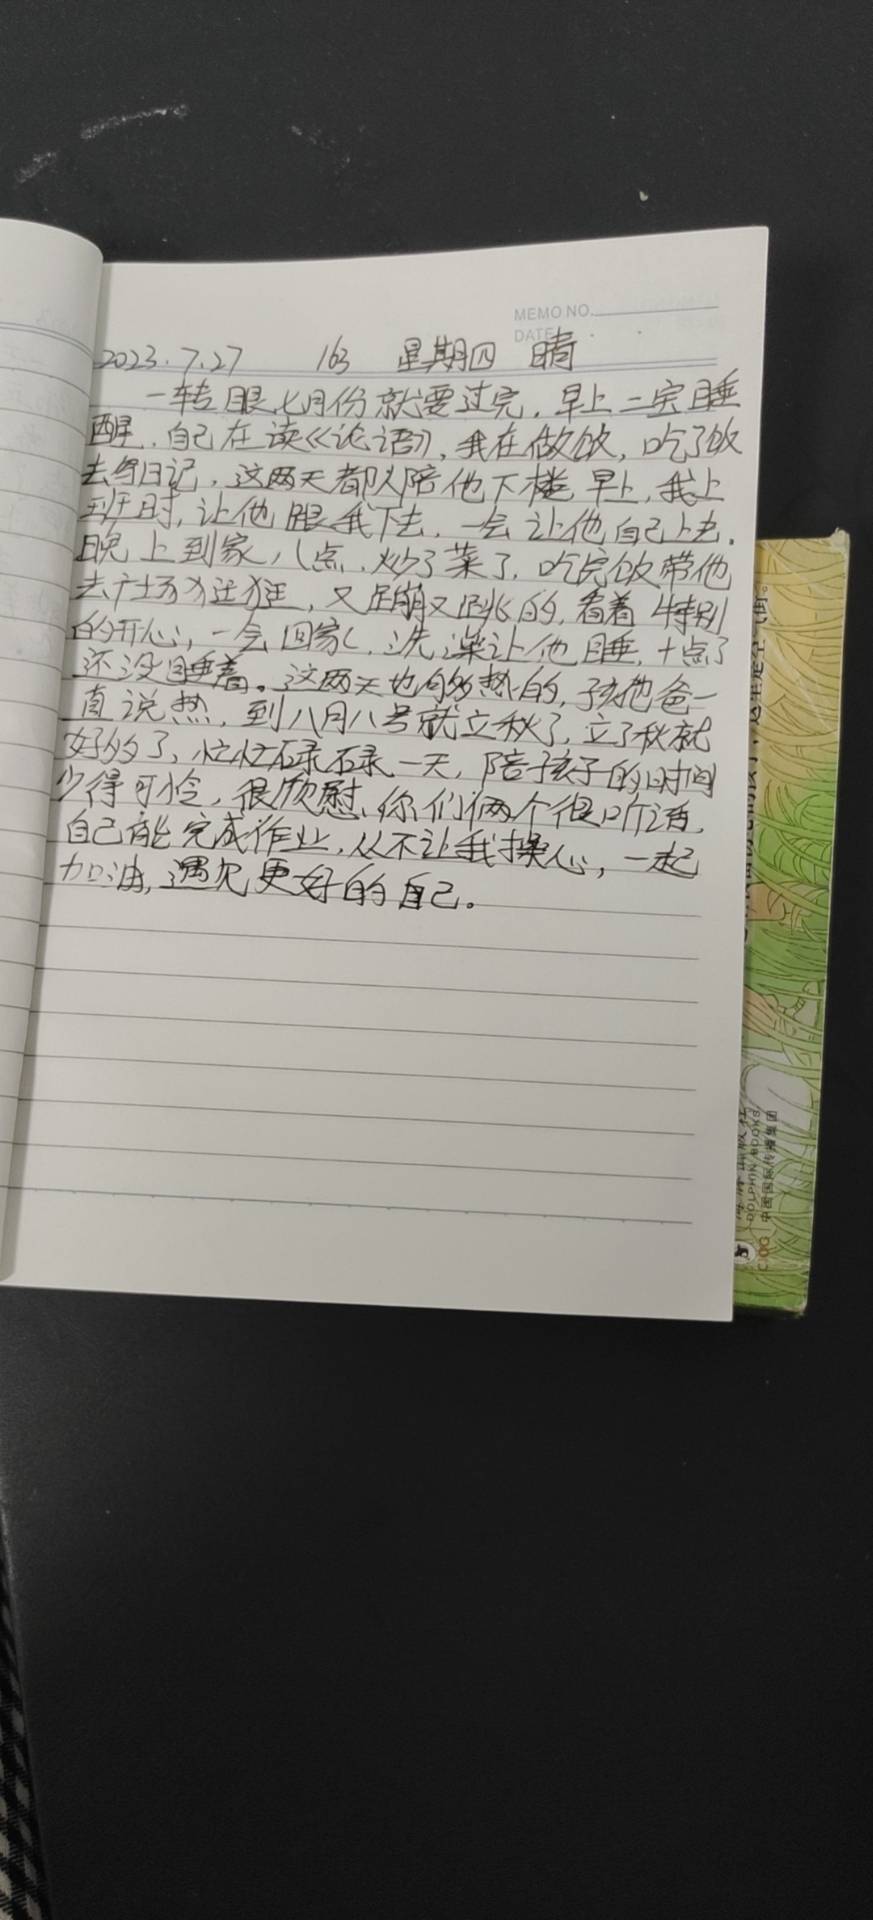 MEMO NO.
DATE
2023.7.27 163 星期四 晴
一转眼七月份就要过完，早上二宝睡
醒，自己在读《论语》，我在做饭，吃了饭
去写日记，这两天都从陪他下楼，早上，我上
班时，让他跟我下去，一会让他自己上去，
晚上到家八点，炒了菜了，吃完饭带他
去广场逛逛，又蹦又跳的，看着特别
的开心，一会回家，洗澡让他睡，十点了
还没睡着。这两天也够热的，孩他爸一
直说热，到八月八号就立秋了，立了秋就
好多了，忙忙碌碌一天，陪孩子的时间
少得可怜，很欣慰，你们俩个很听话，
自己能完成作业，从不让我操心，一起
加油，遇见更好的自己。
DOLPHIN BOOKS
CIPG 中国国际传播集团